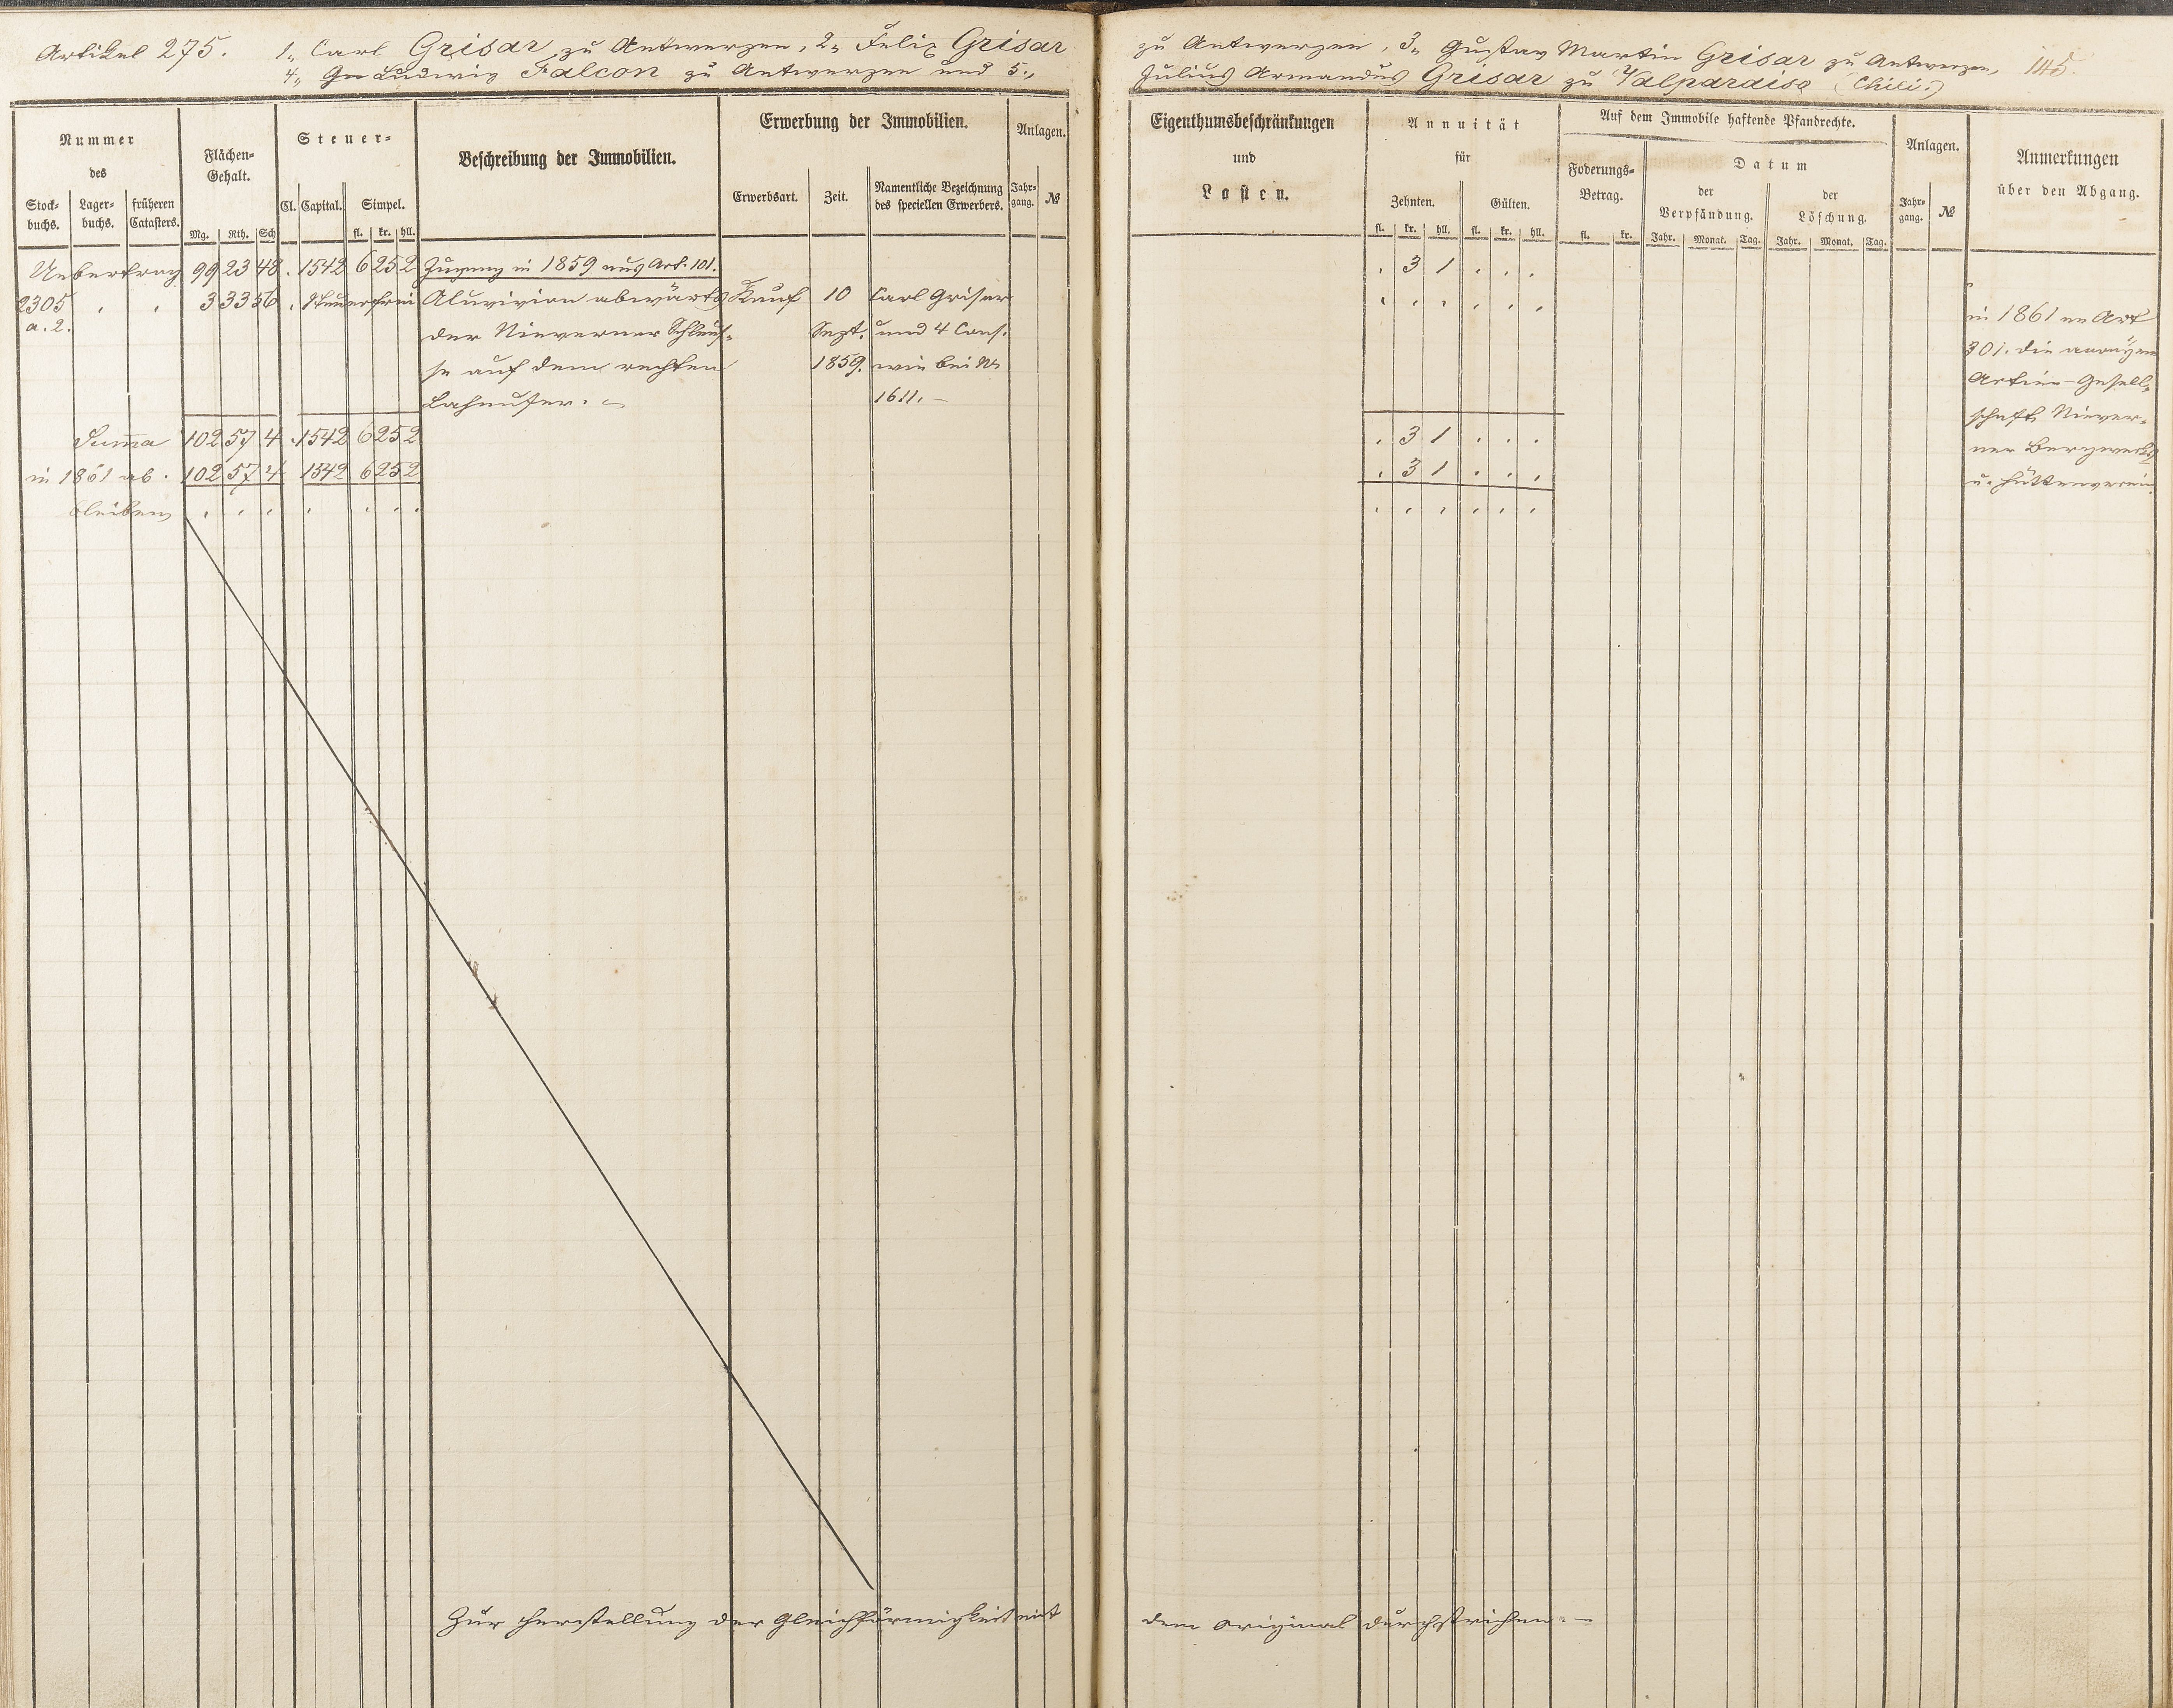 Artikel 275. 1., Carl Grisar zu Antwerpen, 2., Felix Grisar zu Antwerpen, 3., Gustav Martin Grisar zu Antwerpen, 145.
4., Ludwig Falcon zu Antwerpen und 5., Julius Armandus Grisar zu Valparaiso (Chili.)
Nummer
des
Stock-
buchs.
Lager-
buchs.
früheren
Catasters.
Flächen-
Gehalt.
Mg. Rth. Sch
Steuer-
Cl. Capital. Simpel.
fl. kr. hll.
Beschreibung der Immobilien.
Erwerbung der Immobilien.
Erwerbsart. Zeit. Namentliche Bezeichnung
des speciellen Erwerbers.
Anlagen.
Jahr-
gang. №
Eigenthumsbeschränkungen
und
Lasten.
Annuität
für
Zehnten. Gülten.
fl. kr. hll. fl. kr. hll.
Auf dem Immobile haftende Pfandrechte.
Foderungs-
Betrag.
fl. kr.
Datum
der
Verpfändung.
der
Löschung.
Jahr. Monat. Tag. Jahr. Monat. Tag.
Anlagen.
Jahr-
gang. №
Anmerkungen
über den Abgang.
Uebertrag 99 23 48 . 1542 6 25 2 Zugang in 1859 aus Art. 101. . 3 1 . . .
2305 . . 3 33 56 . steuerfrei Aluvivion abwärts Kauf 10 Carl Grisar . . . . . .
a. 2. der Nieverner Schleus- Sept. und 4 Cons.
se auf dem rechten 1859. wie bei №
Lahnufer. 1611. –
in 1861 an Art
301. die anonyme
Actien-Gesell-
schaft Niever-
ner Bergwerks
u. Hüttenverein.
Summa 102 57 4 . 1542 6 25 2 . 3 1 . . .
in 1861 ab. 102 57 4 1542 6 25 2 . 3 1 . . .
bleiben . . . . . . . . . . . . .
Zur Herstellung der Gleichförmigkeit mit dem Original durchstrichen. –